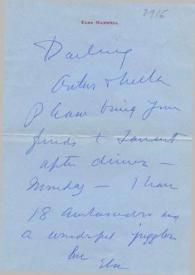 2916
ELSA MAXWELL
Darling
Please bring your
friends &
after dinner –
Monday – I have
18 Ambassadors and
a wonderful juggler
Love Elsa